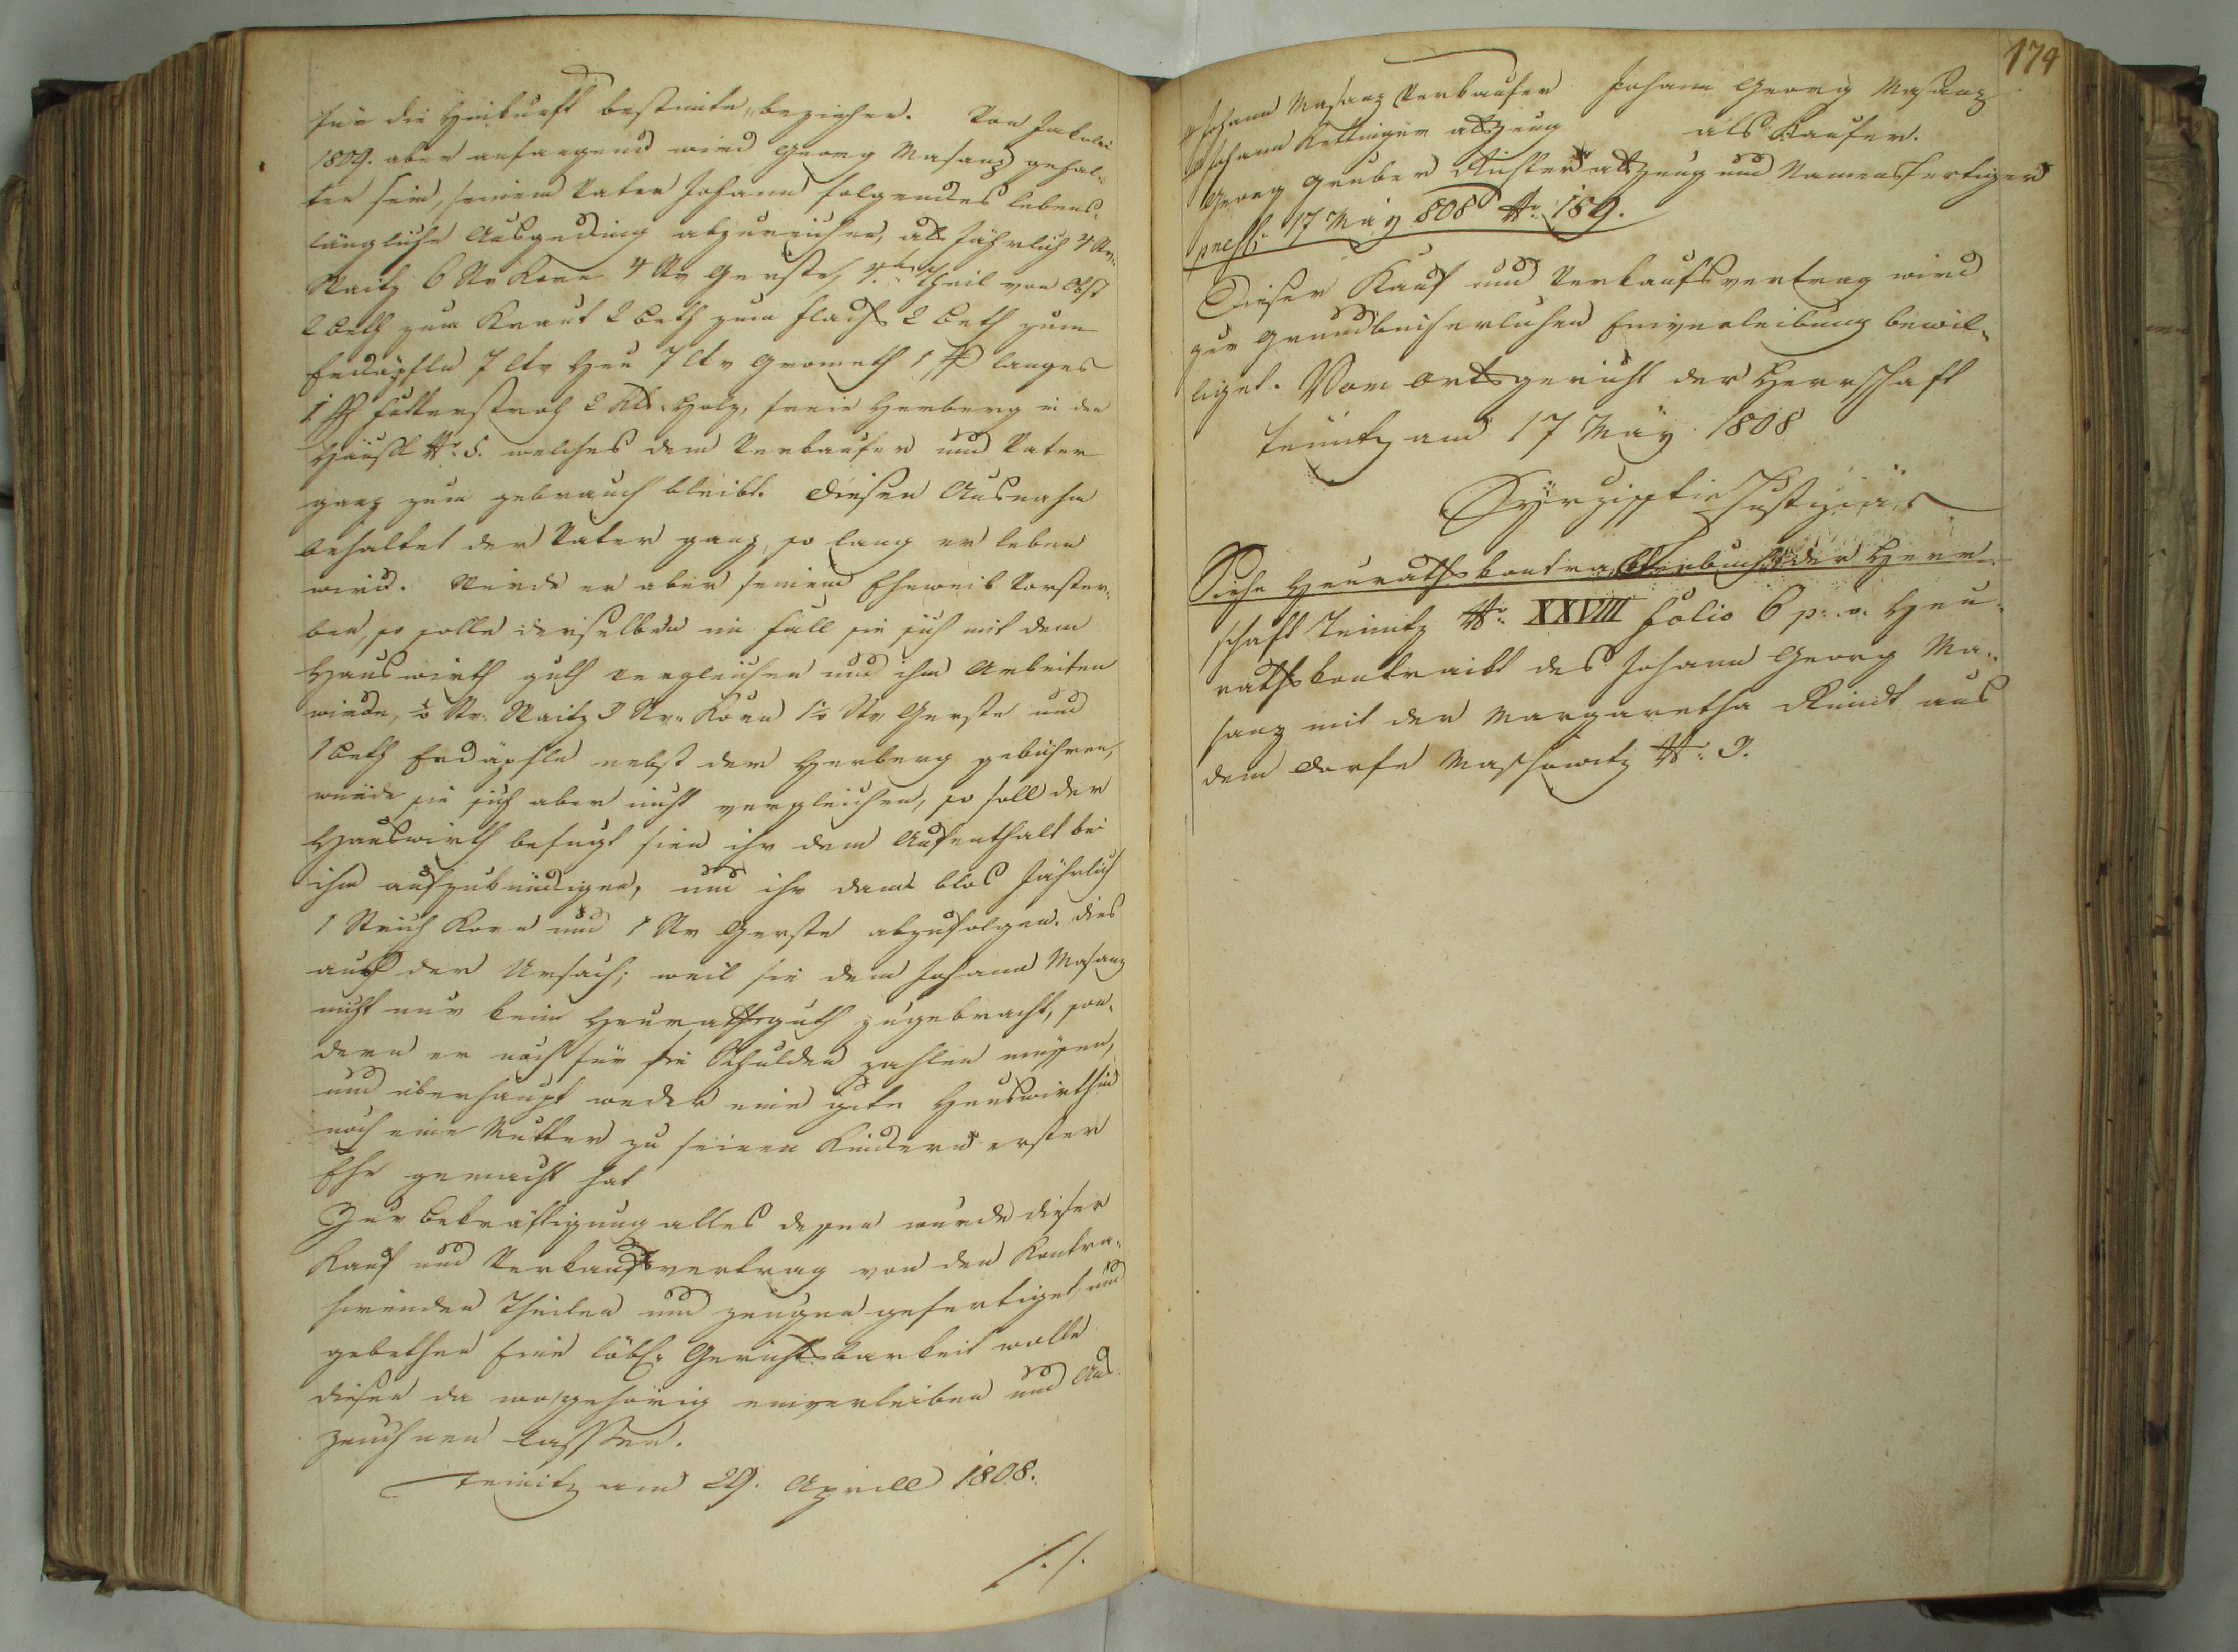 für die Hinkunft bestimte, beziehen. Von Jakobi
1809. aber anfangend wird Georg Masanz gehal-
ten sein, seinem Vater Johann folgendes lebens-
längliche Ausgeding abzureichen, als Jährlich 4 Str.
Waitz 6 Str Korn 4 Str Gerste, 4.ten Theil von Obst
2 Beth zum Kraut 2 Beth zum Flachs 2 Beth zum
Erdäpfln 7 Ctr Heu 7 Ctr Grometh 1 ß langes
1 ß Futterstroh 2 Klft. Holz, freie Herberg in der
Häusl Nr. 5. welches dem Verkaufer und Vater
ganz zum gebrauch bleibt. Diesen Ausnahm
behaltet der Vater ganz, so lang er leben
wird. Würde er aber seinem Eheweib Vorster-
ben, so solle derselben im fall sie sich mit dem
Hauswirth guth vergleichen und ihm Arbeiten
würde, ½ Str. Waitz 3 Str. Korn 1½ Str Gerste und
1 Beth Erdäpfln nebst der Herberg gebühren,
würde sie sich aber nicht vergleichen, so soll der
Hauswirth befugt sein ihr dem Aufenthalt bei
ihm aufzukündigen, und ihr dann blos Jährlich
1 Strich Korn und 1 Str Gerste abzufolgen. dies
aus der Ursach; weil sie dem Johann Masanz
nicht nur kein Heurathsguth zugebracht, son-
dern er noch für sie Schulden zahlen müssen,
und überhaupt weder eine gute Hauswirthin
noch eine Mutter zu seinen Kindern erster
Ehe gemacht hat
Zur Bekräftigung alles dessen wurde dieser
Kauf und Verkaufsvertrag von den Kontra-
hirenden Theilen und zeugen gefertiget, und
gebethen Eine löbl. Gerichtsbarkeit wolle
diesen da wo gehörig einverleiben und Aus-
zeichnen lassen.
Teinitz am 29. Aprill 1808.
/. /.
174
Johann Masanz Verkaufer Johann Georg Masanz
Johann Rettinger als zeug als Kaufer.
Georg Gruber Richter als zeug und Namensfertiger
17 May 808 Nr. 189.
Dieser Kauf und Verkaufsvertrag wird
zur Grundbücherlichen Einverleibung bewil-
liget. Vom Ortsgericht der Herrschaft
Teinitz am 17 May 1808
Justiziär
Siehe Heurathskontraktenbuch der Herr-
schaft Teinitz Nr. XXVIII Folio 6 p. v. Heu-
rathskontrakt des Johann Georg Ma-
sanz mit der Margaretha aus
dem Dorfe Maschowitz Nr. 3.